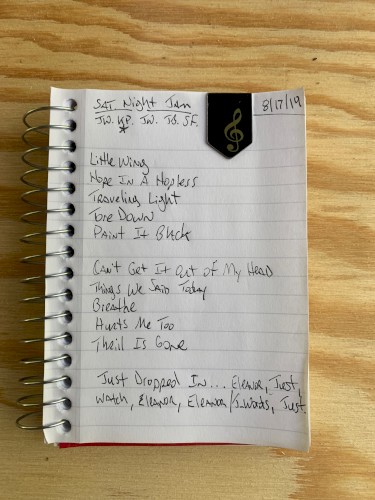 SAT. Night Jam
8/17/19
JW. KP. JW. JG. SF.
*
Little Wing
Hope In A Hopless
Traveling Light
Tore Down
Paint It Black
Can't Get It Out of My Head
Things We Said Today
Breathe
Hurts Me Too
Thrill Is Gone
Just Dropped In... Eleanor, Just,
Watch, Eleanor, Eleanor/J-Words, Just